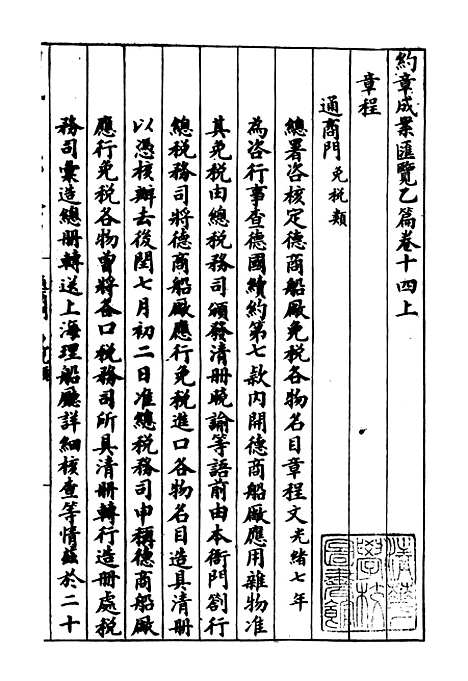 約章成案匯覽乙篇卷十四上
章程
通商門 免稅類
總署咨核定德商船厰免稅各物名目章程文 光緒七年
為咨行事查德國續約第七款內開德商船厰應用雜物准
其免稅由總稅務司頒發清冊曉諭等語前由本衙門劄行
總稅務司將德商船厰應行免稅進口各物名目造具清冊
以憑核辦去後閏七月初二日准總稅務司申稱德商船厰
應行免稅各物曾將各口稅務司所具清冊轉行造冊處稅
務司彙造總冊轉送上海理船廳詳細核查等情茲於二十
清華
學校
圖書館